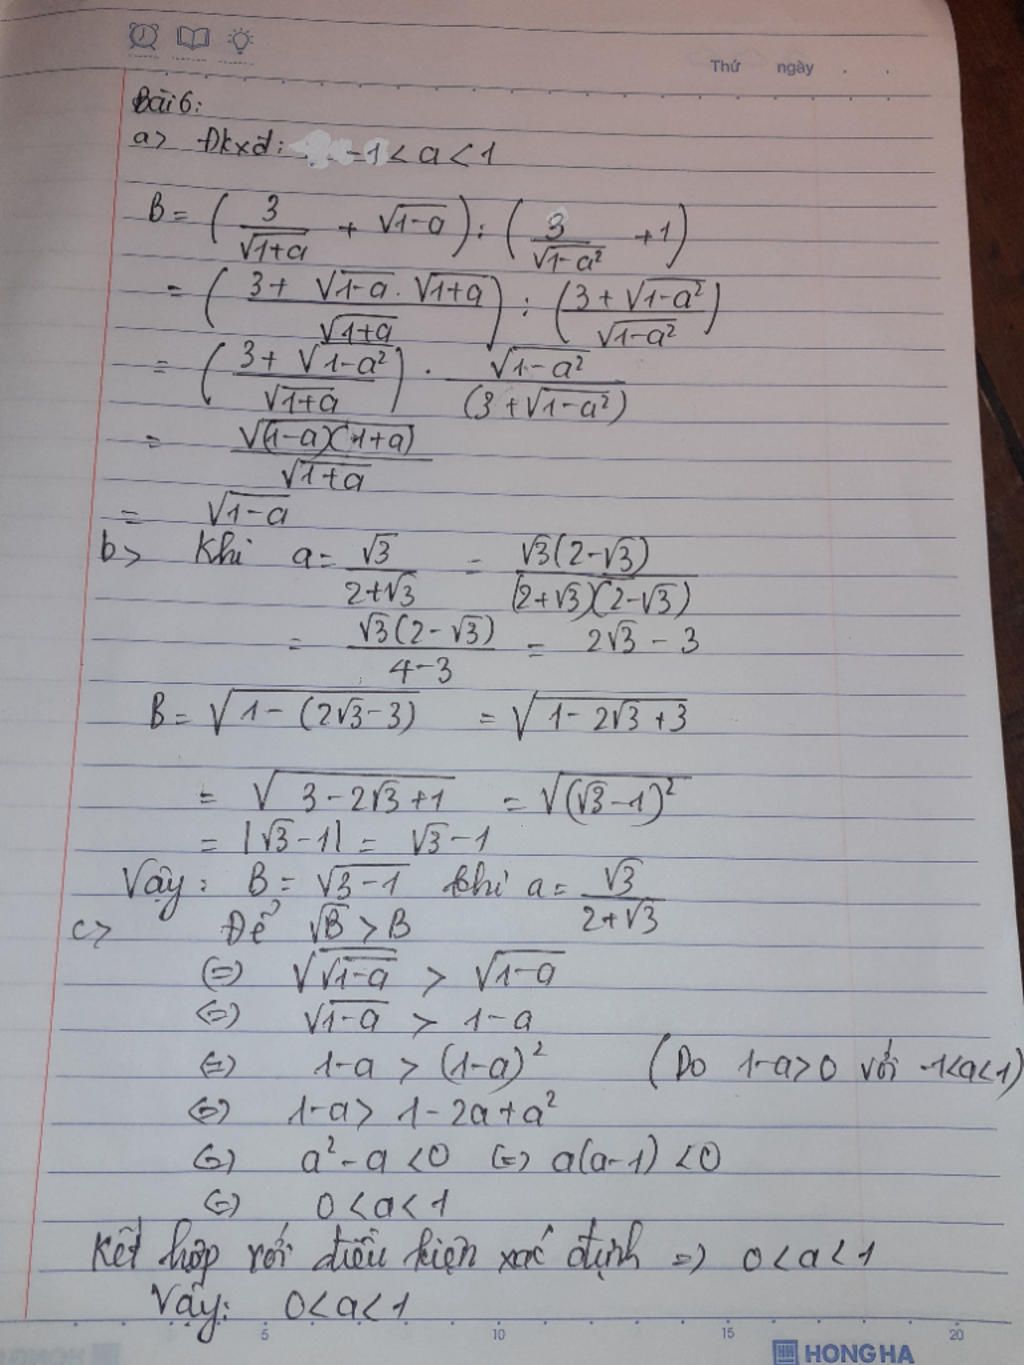 Thứ ngày
Bài 6:
a> Đkxđ: -1 < a < 1
B = (3/√(1+a) + √(1-a)) : (3/√(1-a²) + 1)
= ((3 + √(1-a) . √(1+a))/√(1+a)) : ((3 + √(1-a²))/√(1-a²))
= ((3 + √(1-a²))/√(1+a)) . √(1-a²)/(3 + √(1-a²))
= √((1-a)(1+a))/√(1+a)
= √(1-a)
b> Khi a = √3/(2+√3) = √3(2-√3)/((2+√3)(2-√3))
= √3(2-√3)/(4-3) = 2√3 - 3
B = √(1-(2√3-3)) = √(1-2√3+3)
= √(3-2√3+1) = √((√3-1)²)
= |√3-1| = √3-1
Vậy: B = √(3-1) khi a = √3/(2+√3)
c> Để √B > B
(=) √(√(1-a)) > √(1-a)
(=) √(1-a) > 1-a
(=) 1-a > (1-a)² (Do 1-a>0 với -1<a<1)
(=) 1-a > 1-2a+a²
(=) a²-a <0 (=) a(a-1) <0
(=) 0<a<1
Kết hợp với điều kiện xác định => 0<a<1
Vậy: 0<a<1
5 10 15 20
HONG HA